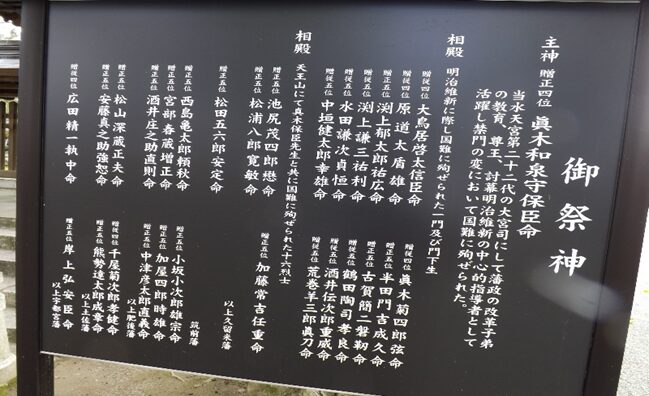 御祭神
主神 贈正四位 眞木和泉守保臣命
当水天宮第二十二代の大宮司にして藩政の改革子弟
の教育、尊王、討幕明治維新の中心的指導者として
活躍し禁門の変において国難に殉ぜられた。
相殿 明治維新に際し国難に殉ぜられた一門及び門下生
贈従四位 大鳥居啓太信臣命
贈従四位 原道太盾雄命
贈正五位 渕上郁太郎祐広命
贈正五位 渕上謙三祐利命
贈正五位 水田謙次貞恒命
贈正五位 中垣健太郎幸雄命
贈従四位 眞木菊四郎弦命
贈正五位 半田門吉成久命
贈正五位 古賀簡二磐靭命
贈従五位 鶴田陶司孝良命
贈従五位 酒井伝次郎重威命
贈従五位 荒巻羊三郎眞刀命
相殿 天王山にて真木保臣先生と共に国難に殉ぜられた十六烈士
贈正五位 池尻茂四郎懋命
贈正五位 松浦八郎寛敏命
贈正五位 加藤常吉任重命
贈正五位 松田五六郎安定命
以上久留米藩
贈正五位 西島亀太郎頼秋命
贈正五位 小坂小次郎雄宗命
筑前藩
贈正五位 宮部春蔵増正命
贈正五位 加屋四郎時雄命
贈正五位 酒井庄之助直則命
贈正五位 中津彦太郎直義命
以上肥後藩
贈正五位 松山深蔵正夫命
贈従四位 千屋菊次郎孝健命
贈正五位 安藤真之助強恕命
贈正五位 能勢達太郎成章命
以上土佐藩
贈従四位 広田精一執中命
贈正五位 岸上弘安臣命
以上宇都宮藩